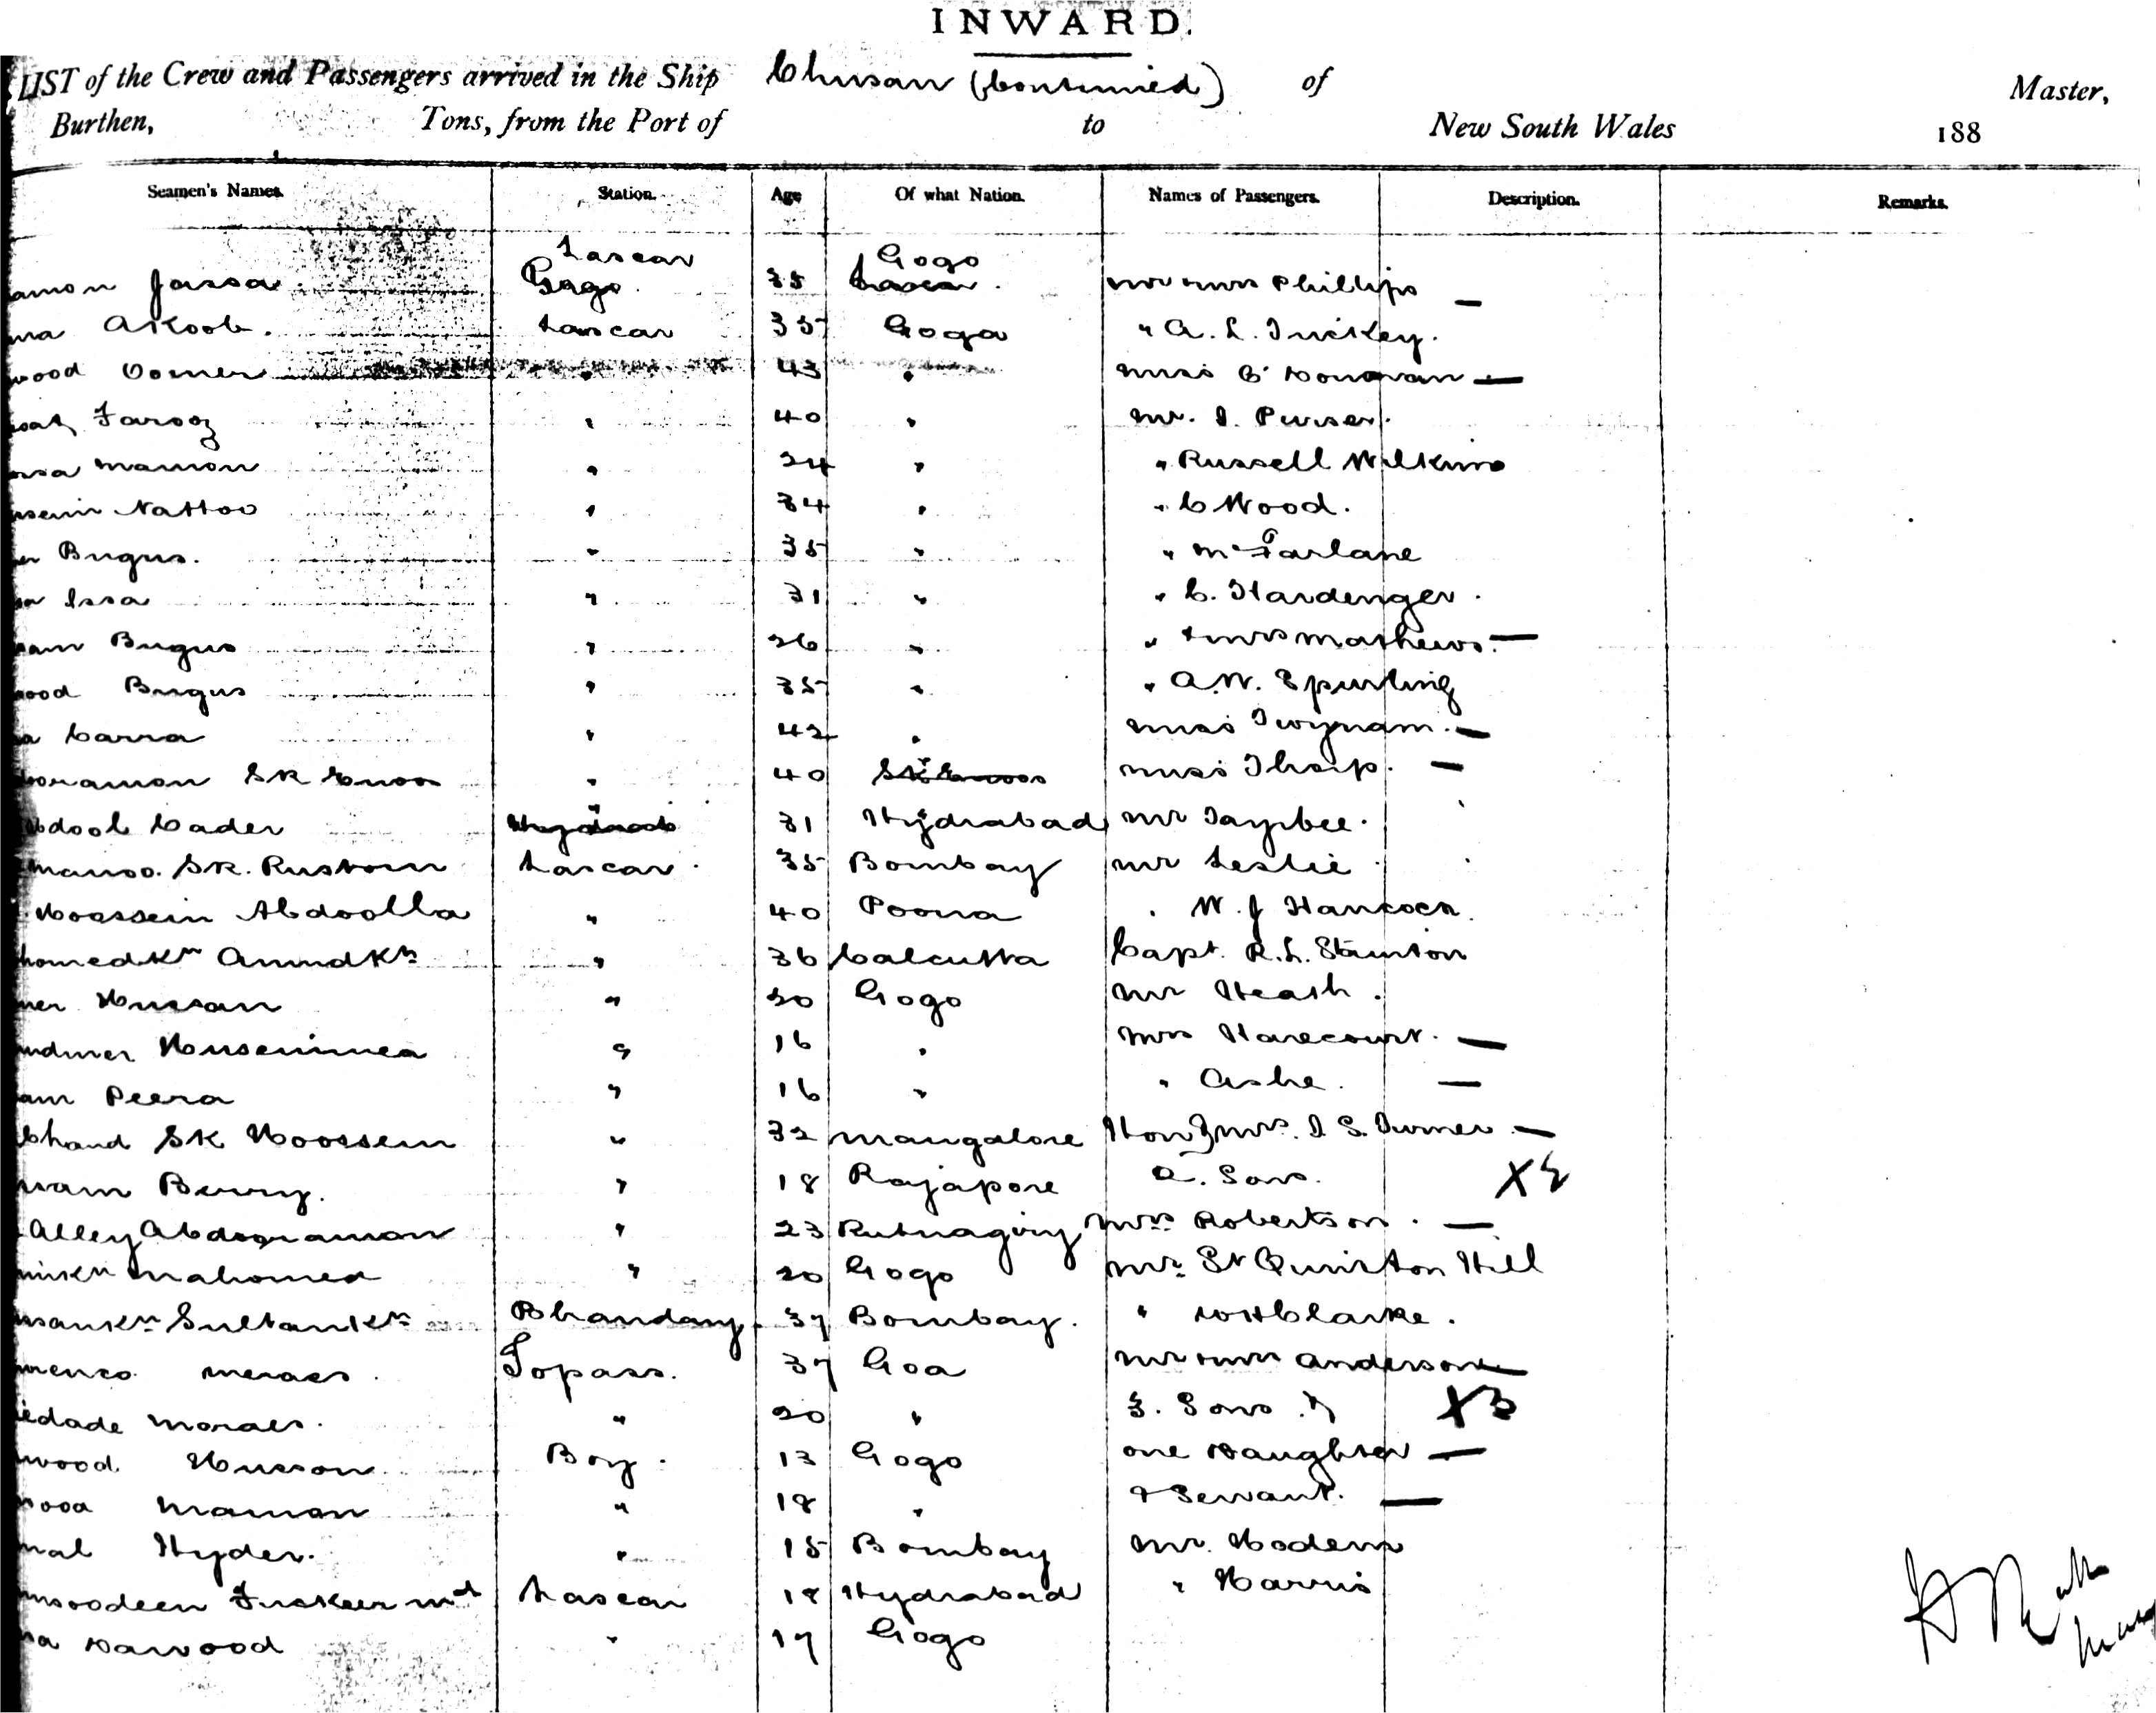 INWARD.
LIST of the Crew and Passengers arrived in the Ship Chusan (Continued) of Master,
Burthen, Tons, from the Port of to New South Wales 188
Seamen's Names. Station. Age Of what Nation. Names of Passengers. Description. Remarks.
Lascar Gogo
amon Jassa Gogo. 35 Lascar. Mr & Mrs Phillips —
Akoob. Lascar 35 Goga " A. L. Tuckey.
wood Oomer " 43 " Miss O'Donovan —
Farooz " 40 " Mr. I. Purser.
Mamon " 24 " " Russell Wilkins
ssein Nattoo " 34 " " C Wood.
Bugus. " 35 " " McFarlane
Issa " 31 " " C. Hardenger.
Bugus " 26 " " & Mrs Mathews. —
ood Bugus " 35 " " A.W. Spurling
Carra " 42 " Miss Twynam. —
oramon SK Enoos " 40 SK Enoos Miss Tharp. —
bdool Cader 31 Hydrabad Mr Taybee.
SK. Rustom Lascar. 35 Bombay Mr Leslie
Hoossein Abdoolla " 40 Poona " W. J Hancock.
homedKn AmmdKn " 36 Calcutta Capt. R. L. Staunton
mer Hussan " 20 Gogo Mr Heath.
Husseinmea " 16 " Mrs Harecourt. —
am Peera " 16 " " Ashe. —
Chand SK Hoossein " 32 Mangalore Hon & Mrs. I S. Turner —
ssam Berry. " 18 Rajapore 2. Sons. X2
Alley Abdooramon " 23 Rutnagiry Mrs Robertson. —
Mahomed " 20 Gogo Mr. St Quinton Hill
ssanKn SultanKn Bhandary. 37 Bombay. " Clarke.
Meraes. Topass. 37 Goa Mr & Mrs Anderson —
edade Moraes. " 20 " 3. Sons. X3
wood Husson Boy. 13 Gogo one Daughter —
Mamon " 18 " & Servant. —
mal Hyder. " 15 Bombay Mr. Hodern
msoodeen Fuckeer Md Lascar 18 Hydrabad " Harris
Dawood " 17 Gogo